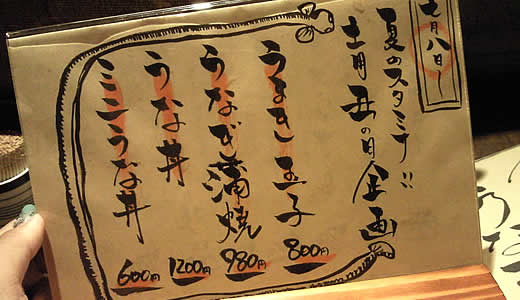 七月八日〜
夏のスタミナ!!
土用丑の日企画
うまき玉子 800円
うなぎ蒲焼 980円
うな丼 1200円
ミニうな丼 600円